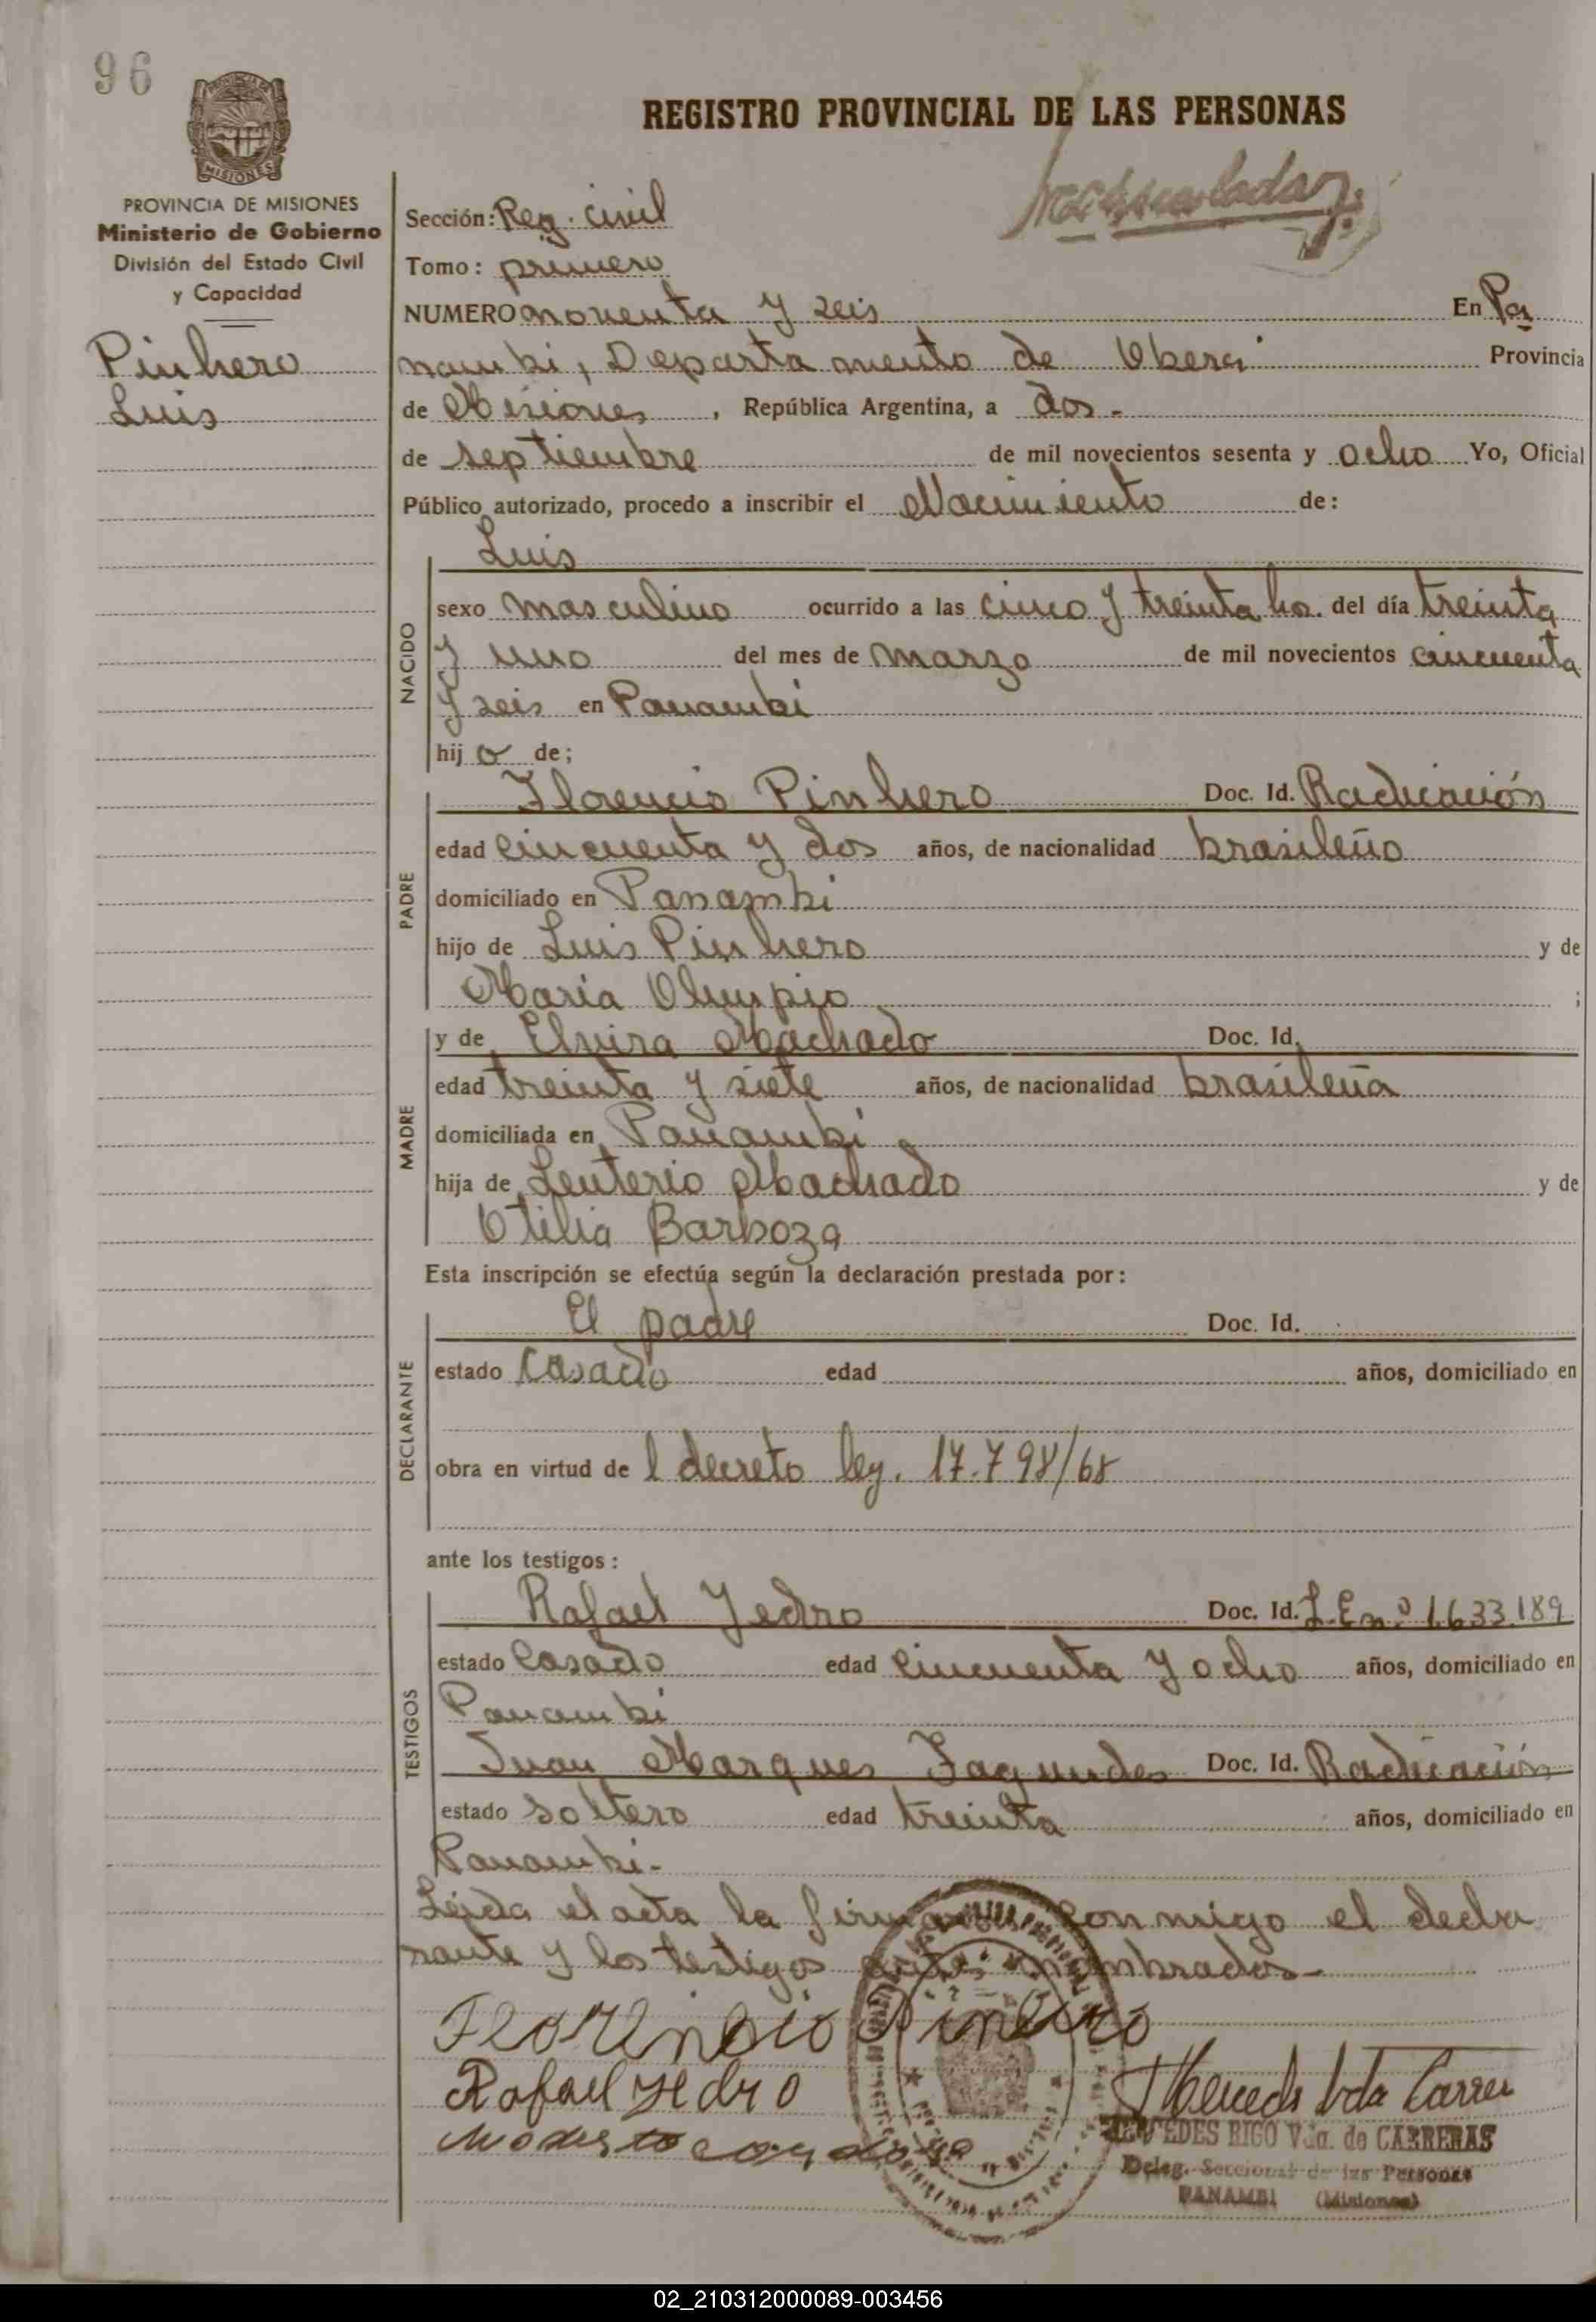 96
REGISTRO PROVINCIAL DE LAS PERSONAS
MISIONES
PROVINCIA DE MISIONES
Ministerio de Gobierno
División del Estado Civil
y Capacidad
Pinhero
Luis
Sección: Reg. civil
Tomo: primero
NUMERO noventa y seis En Pa
nambi, Departamento de Oberá Provincia
de Misiones, República Argentina, a dos-
de septiembre de mil novecientos sesenta y ocho Yo, Oficial
Público autorizado, procedo a inscribir el Nacimiento de:
NACIDO
Luis
sexo masculino ocurrido a las cinco y treinta hs. del día treinta
y uno del mes de marzo de mil novecientos cincuenta
y seis en Panambi
hijo de;
PADRE
Florencio Pinhero Doc. Id. Radicación
edad cincuenta y dos años, de nacionalidad brasileño
domiciliado en Panambi
hijo de Luis Pinhero y de
María Olimpio ;
MADRE
y de Elvira Machado Doc. Id.
edad treinta y siete años, de nacionalidad brasileña
domiciliada en Panambi
hija de Leuterio Machado y de
Otilia Barboza
Esta inscripción se efectúa según la declaración prestada por:
DECLARANTE
El padre Doc. Id.
estado casado edad años, domiciliado en
obra en virtud de l decreto ley. 17.798/68
ante los testigos:
TESTIGOS
Rafael Yedro Doc. Id. L.E.nº 1.633.189
estado casado edad cincuenta y ocho años, domiciliado en
Panambi
Juan Marques Fagundes Doc. Id. Radicación
estado soltero edad treinta años, domiciliado en
Panambi-
Leída el acta la firman conmigo el decla
rante y los testigos nombrados-
Rafael Yedro
MERCEDES RIGO Vda. de CARRERAS
Deleg. Seccional de las Personas
PANAMBI (Misiones)
02_210312000089-003456